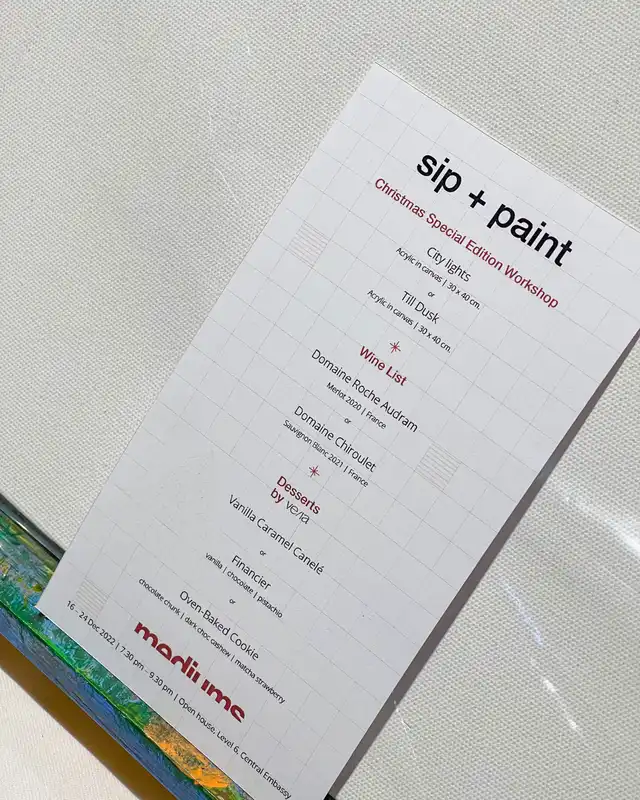 sip + paint
Christmas Special Edition Workshop
City lights
Acrylic in canvas | 30 x 40 cm.
or
Till Dusk
Acrylic in canvas | 30 x 40 cm.
Wine List
Domaine Roche Audram
Merlot 2020 | France
or
Domaine Chiroulet
Sauvignon Blanc 2021 | France
Desserts
by vela
Vanilla Caramel Canelé
or
Financier
vanilla | chocolate | pistachio
or
Oven-Baked Cookie
chocolate chunk | dark choc cashew | matcha strawberry
mediums
16 - 24 Dec 2022 | 7.30 pm - 9.30 pm | Open house, Level 6, Central Embassy